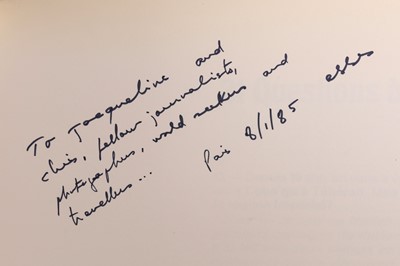 To Jacqueline and
chris, fellow journalists,
photographers, world seekers and
travellers...
Paris 8/1/85 abbas